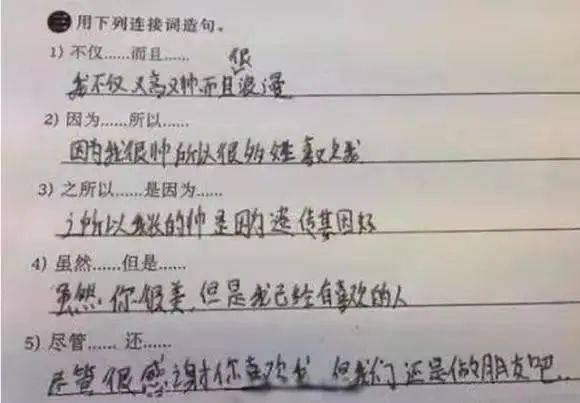 三 用下列连接词造句。
1) 不仅……而且……
很
我不仅又高又帅而且浪漫
2) 因为……所以……
因为我很帅所以很多女生喜欢我
3) 之所以……是因为……
之所以我长的帅是因为遗传基因好
4) 虽然……但是……
虽然你很美,但是我已经有喜欢的人
5) 尽管…… 还……
尽管很感谢你喜欢我 但我们还是做朋友吧..